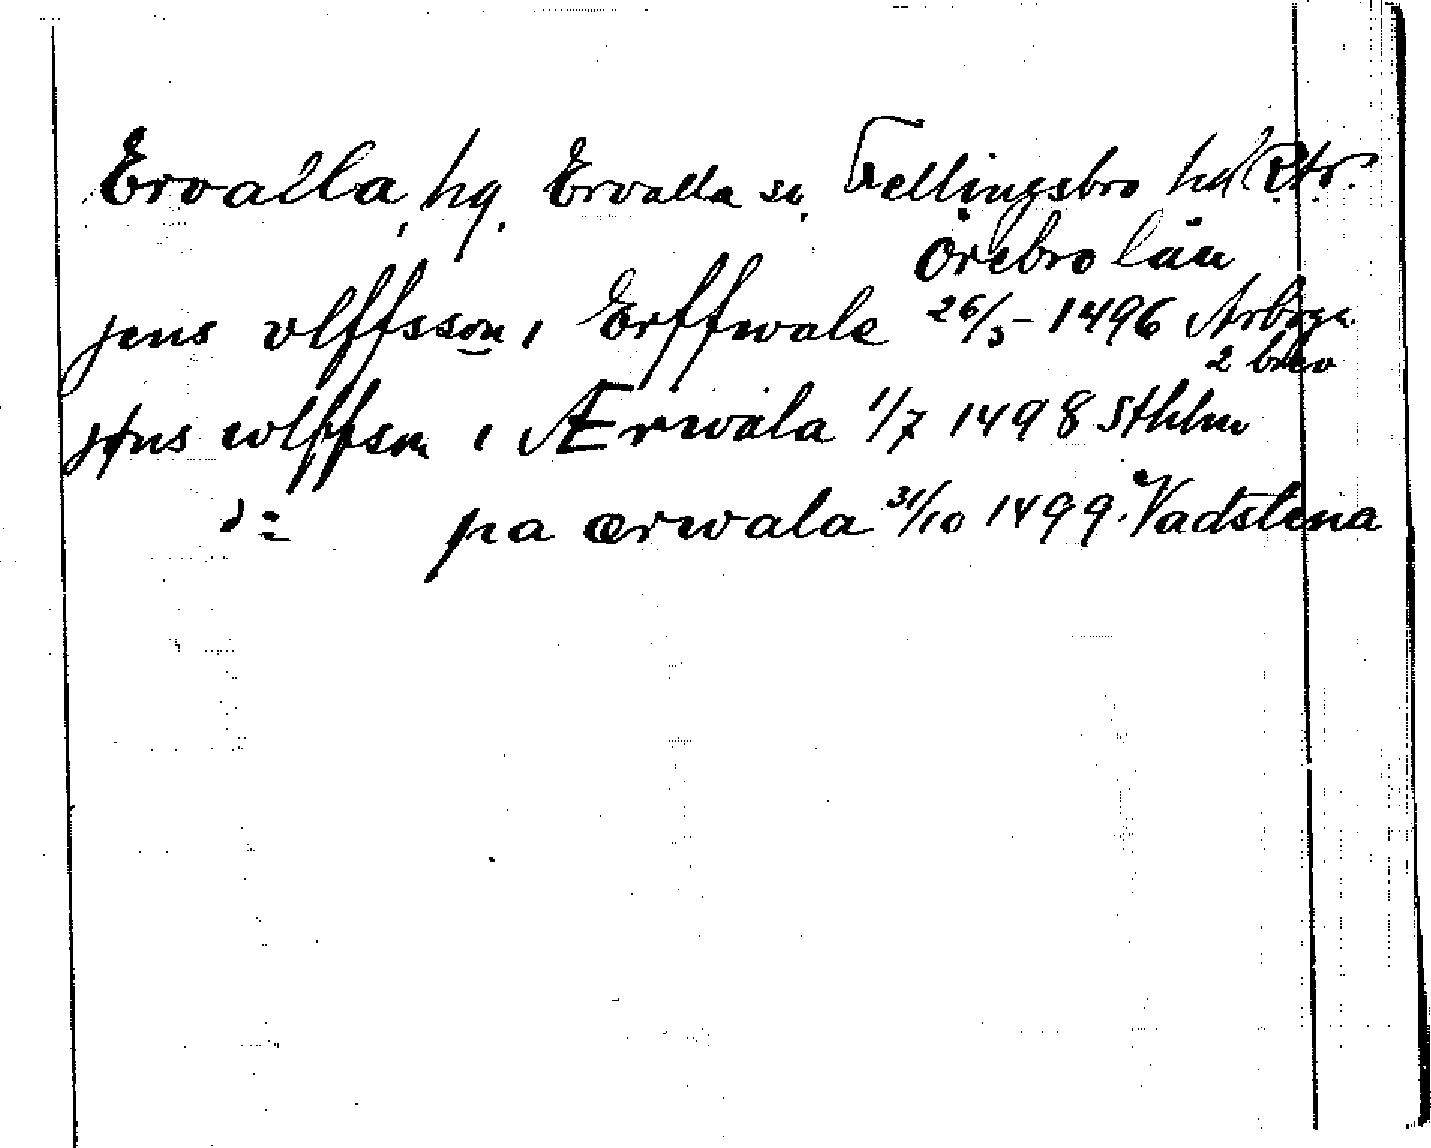 Ervalla, hg. Ervalla sn. Fellingsbro hd
Örebro län
jens vlffsson i Erffwale 26/3 - 1496 Arboga
2 brev
jtns wlffsn i Ærwala 1/7 1498 Sthlm
d:= pa ærwala 31/10 1499. Vadstena